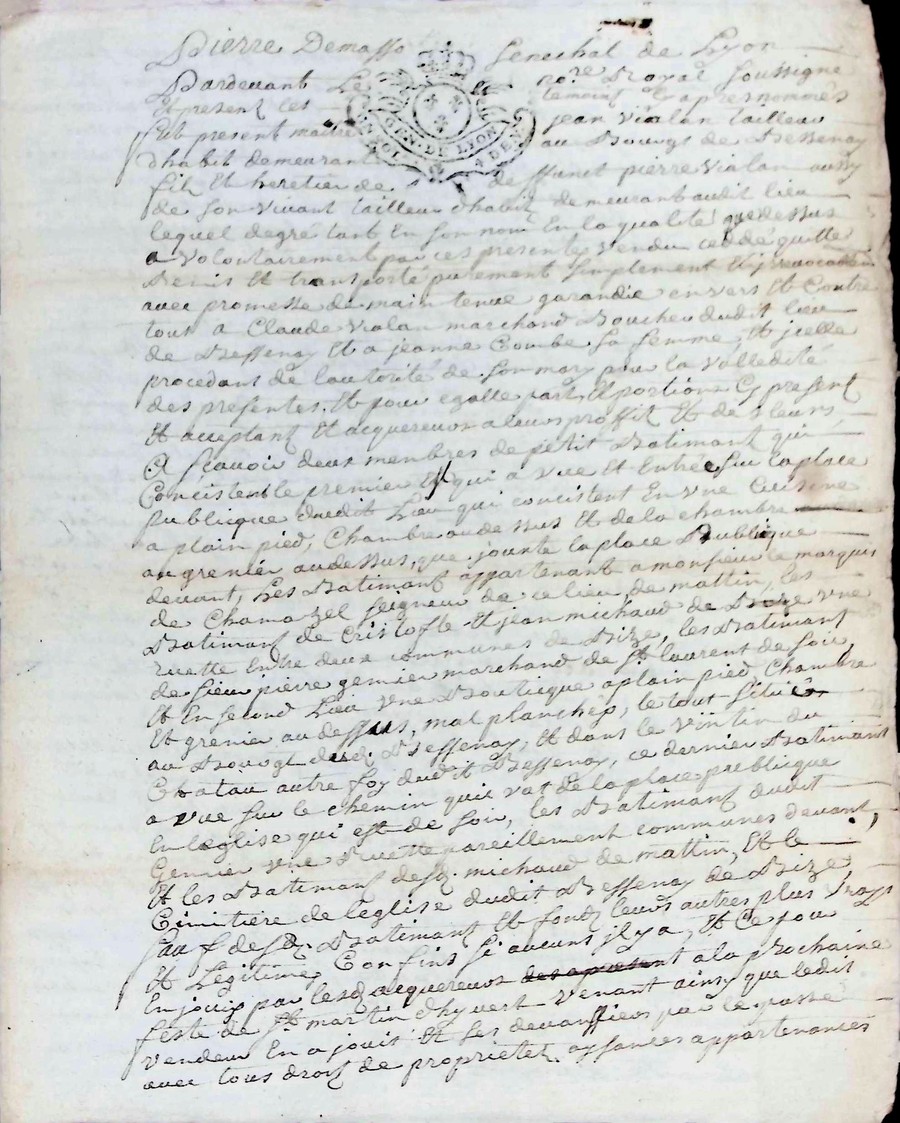 Pierre Demasso Senechal de Lyon
Pardevant Le no.re Royal soussigne
Et present les temoins Cy apres nommés
fut present maitre jean vialan tailleur
dhabit demeurant au Bourgt de Bessenay
fil Et heretier de deffunct pierre vialan aussy
de son vivant tailleur dhabit demeurant audit lieu
lequel degré tant En son nom En la qualité que dessus
a volontairement par ces presentes vendu ceddé quitte
Remis et transporté purement simplement Et jrrevocable
avec promesse de maintenue garandie envers Et Contre
tous a Claude vialan marchand Boucher dudit lieu
de Bessenay Et a jeanne Combe sa femme Et jcelle
procedant de lautorité de son mary pour la vallédité
des presentes, Et pour egalle part Et portions Cy present
Et acceptant Et acquereurs a leurs proffit Et des leurs
A scavoir deux menbres de petit Batimant qui
Concistent le premier Et qui a vue Et Entrée sur la place
publicque dudit Lieu qui concistent En vne Cuisine
a plain pied, Chambre au dessus Et de la chambre
au grenier au dessus, que jouxte la place Publique
devant, Les Batimant appartenant a monsieur le marquis
de Chamazel seigneur de ce lieu, de mattin, les
Batimant de Cristofle Et jean michaud de Bize vne
ruette Entre deux communes de Bize, les Batimant
de sieur pierre gennier marchand de St laurent de soir,
Et En second Lieu vne Bouticque a plain pied, Chambre
Et grenier au dessus, mal planches, le tout situés
au Bourgt dud. Bessenay, Et dans le vintin du
Chatau autre foy dudit Bessenay, ce dernier Batimant
a vue sur le chemin quit vat de la place publicque
En leglise qui est de soir, les Batimant dudit
Gennier vne Ruette pareillement communes devant,
Et les Batimant desd. michaud de mattin, Et le
Cimitiere de leglise dudit Bessenay de Bize
sauf desd. Batimant Et fondz leurs autres plus vrays
Et Legitimes Confins si aucuns jl y a, Et Ce pour
En jouir par lesd. acquereurs des apresent a la prochaine
feste de St martin dhyvert venant ainsy que ledit
vendeur En a jouit Et ses devanssiers par le passé
avec tous droits de proprietet aysances appartenances
GEN. DE LYON
4 DE